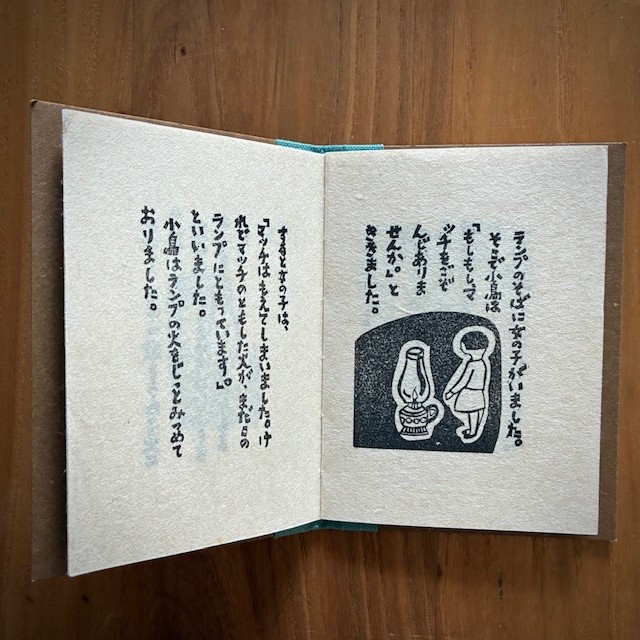 ランプのそばに女の子がいました。
そこで小鳥は
「もしもし、マ
ッチをごぞ
んじありま
せんか。」と
ききました。
すると女の子は、
「マッチはもえてしまいました。け
れどマッチのともした火が、まだこの
ランプにともっています。」
といいました。
小鳥はランプの火をじっとみつめて
おりました。